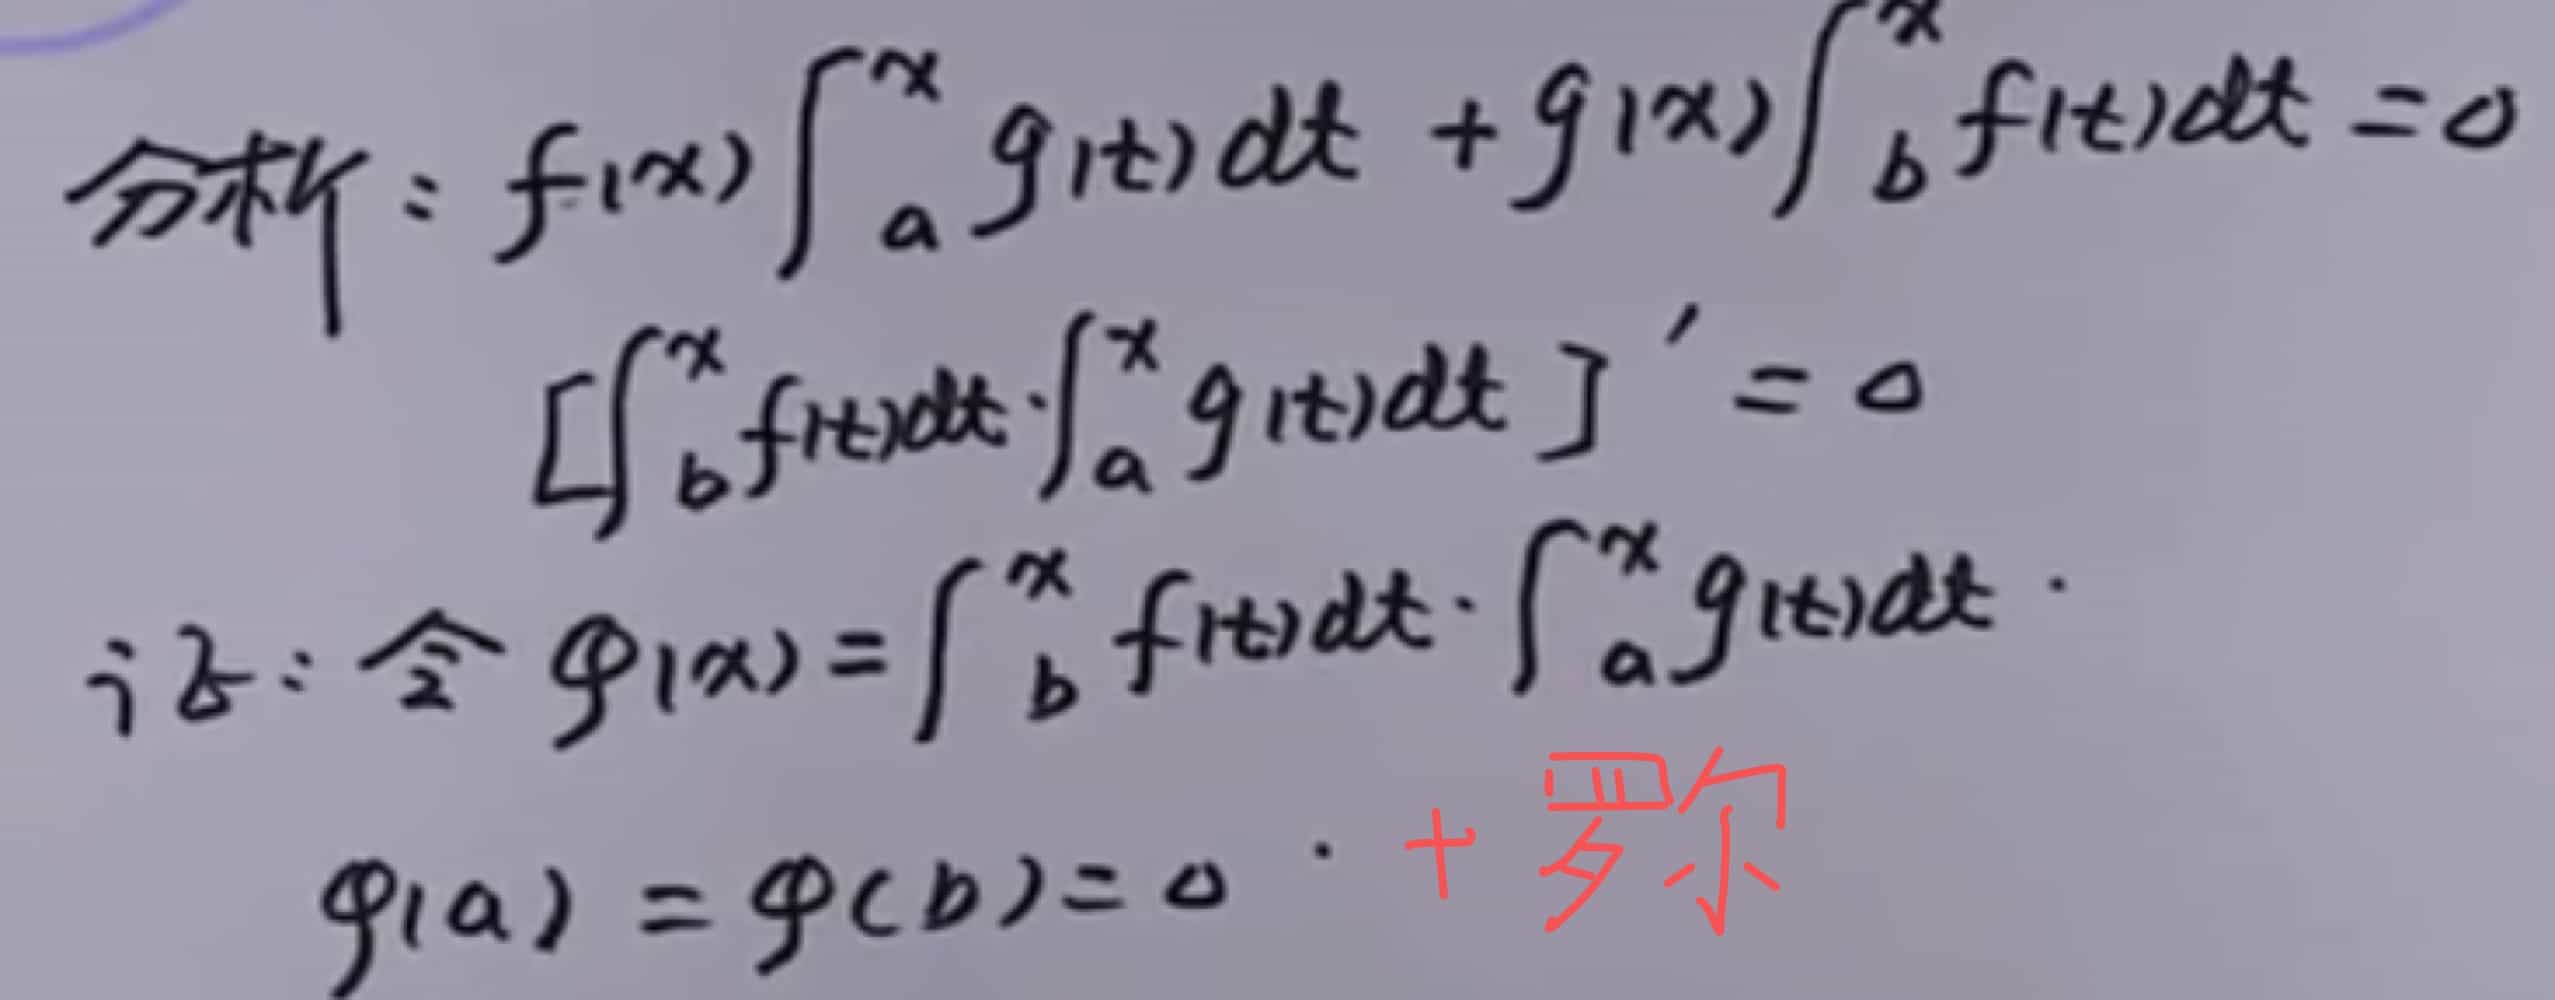 分析：f(x)∫ₐˣ g(t)dt + g(x)∫_bˣ f(t)dt = 0
[∫_bˣ f(t)dt·∫ₐˣ g(t)dt]′ = 0
证：令 φ(x) = ∫_bˣ f(t)dt·∫ₐˣ g(t)dt.
φ(a) = φ(b) = 0. + 罗尔